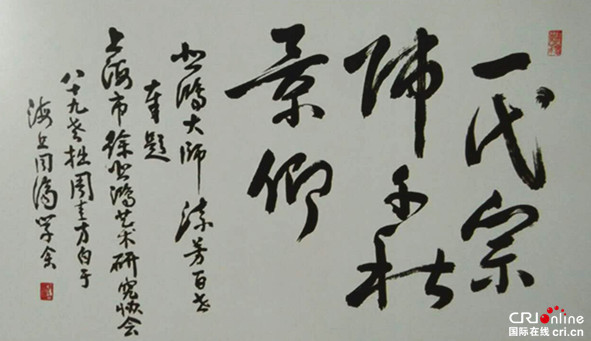 一代宗
师千秋
景仰
悲鸿大师流芳百世
奉题
上海市徐悲鸿艺术研究协会
八十九老拙周方白于
海上同济学舍
CRI online
国际在线 cri.cn